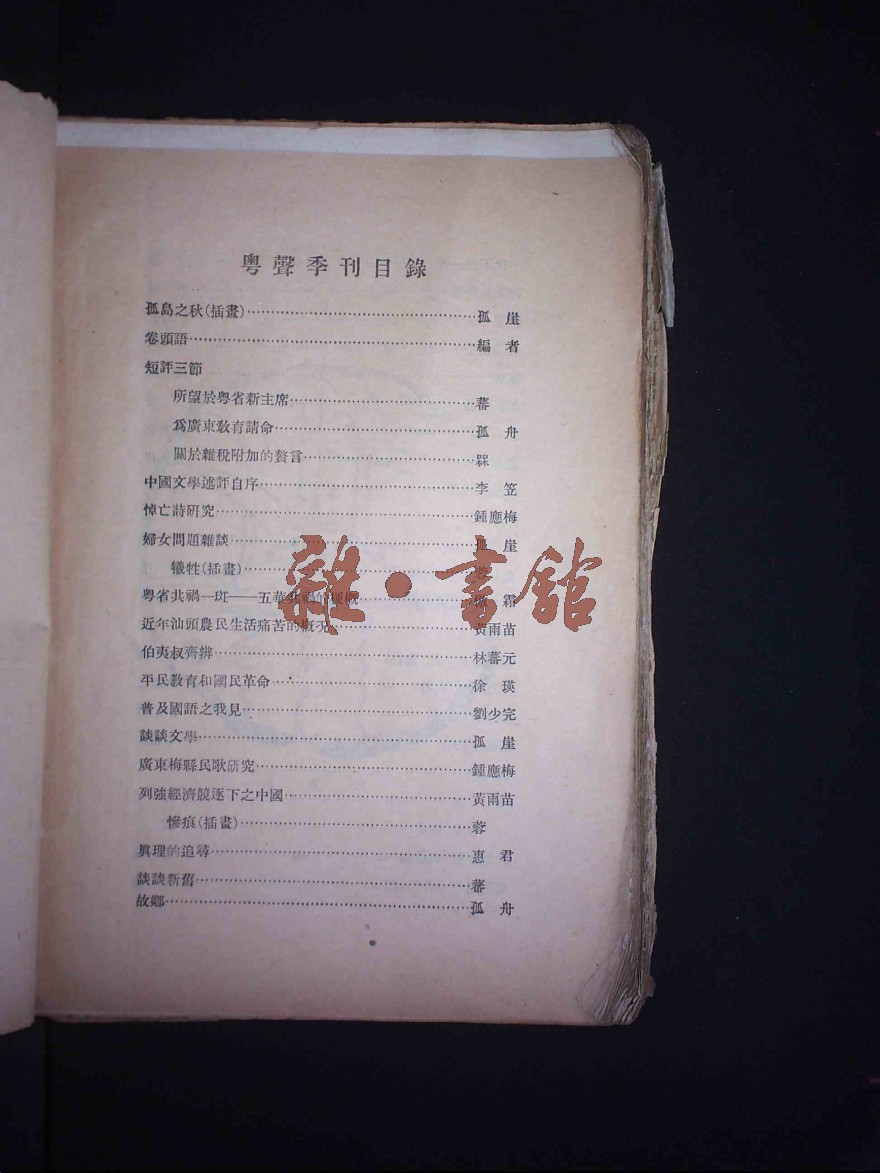 粵聲季刊目錄
孤島之秋(插畫)……………………………孤 崖
卷頭語……………………………編 者
短評三節
所望於粤省新主席……………………………蕃
爲廣東教育請命……………………………孤 舟
關於雜稅附加的贅言……………………………槑
中國文學述評自序……………………………李 笠
悼亡詩研究……………………………鍾應梅
婦女問題雜談……………………………孤 崖
犧牲(插畫)……………………………蓉
粤省共禍一斑——五華共禍的梗概……………………………霜
近年汕頭農民生活痛苦的概況……………………………黃雨苗
伯夷叔齊辨……………………………林蕃元
平民教育和國民革命……………………………徐 瑛
普及國語之我見……………………………劉少完
談談文學……………………………孤 崖
廣東梅縣民歌研究……………………………鍾應梅
列強經濟競逐下之中國……………………………黃雨苗
慘痕(插畫)……………………………蓉
眞理的追尋……………………………惠 君
談談新舊……………………………蕃
故鄉……………………………孤 舟
雜·書館